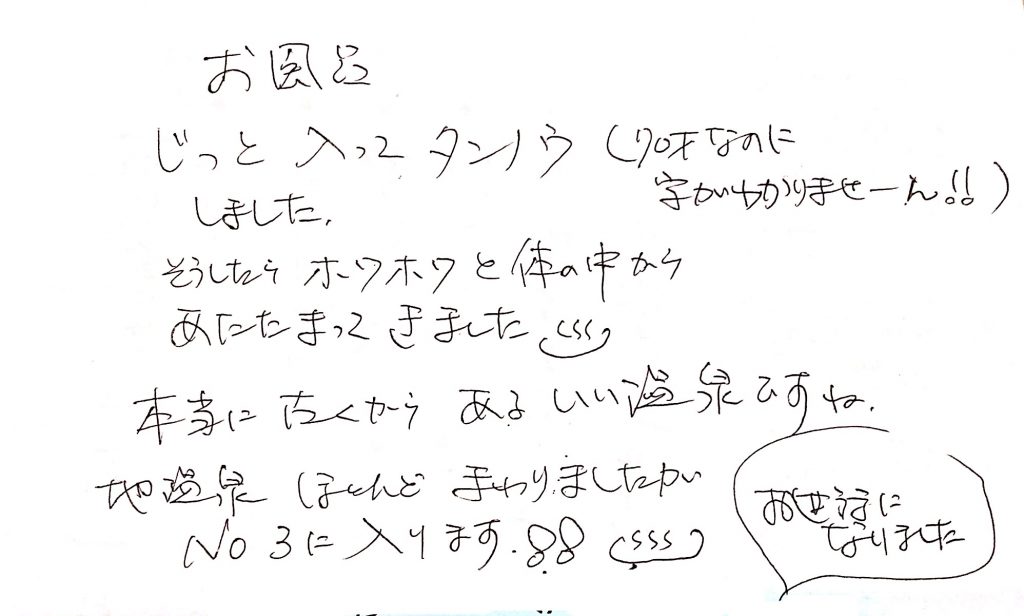 お風呂
じっと入って タンノウ (70才なのに
字がわかりませーん!!)
しました.
そうしたら ホワホワと体の中から
あたたまってきました
本当に古くからあるいい温泉ですね.
地温泉ほとんどまわりましたが
No 3に入ります.
お世話に
なりました